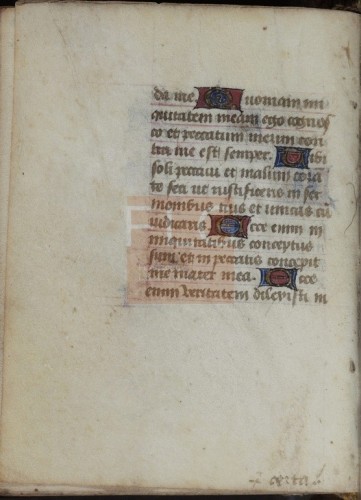 da me. Quoniam ini
quitatem meam ego cognos
co et peccatum meum con
tra me est semper. Tibi
soli peccavi et malum cora
te feci ut iustificeris in ser
monibus tuis et vincas cu
iudicaris. Ecce enim in
iniquitatibus conceptus
sum et in peccatis concepit
me mater mea. Ecce
enim veritatem dilexisti in